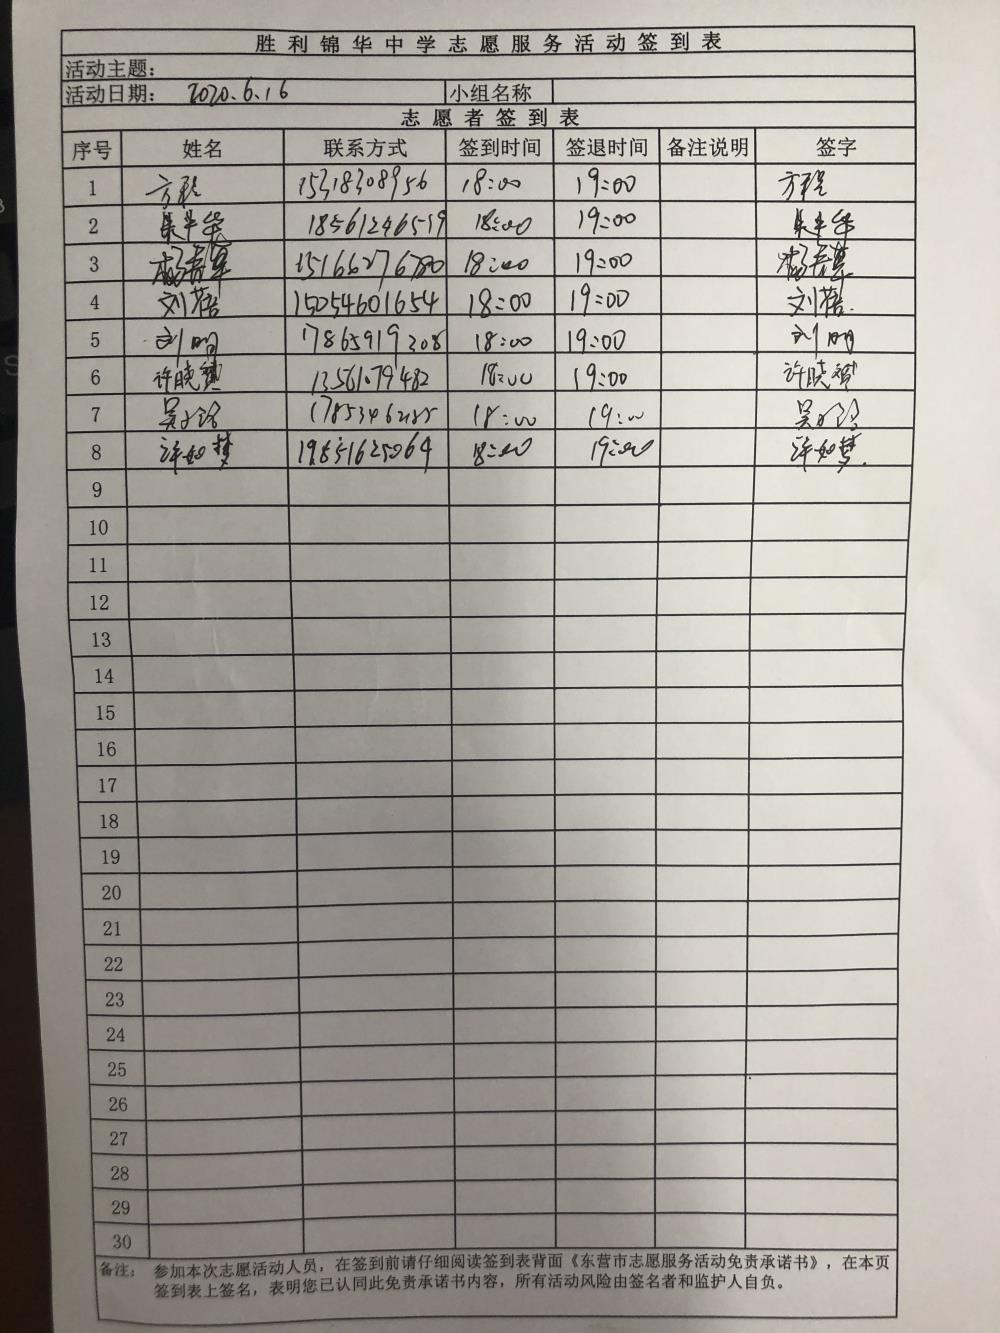 胜利锦华中学志愿服务活动签到表
活动主题:
活动日期: 2020.6.16 小组名称
志愿者签到表
序号 姓名 联系方式 签到时间 签退时间 备注说明 签字
1 方程 15318308956 18:00 19:00 方程
2 18561246519 18:00 19:00
3 15166276780 18:00 19:00
4 刘蓓 15054601654 18:00 19:00 刘蓓
5 刘明 17865919208 18:00 19:00 刘明
6 许晓赟 18:00 19:00 许晓赟
7 18:00 19:00
8 许如梦 18:00 19:00 许如梦
9
10
11
12
13
14
15
16
17
18
19
20
21
22
23
24
25
26
27
28
29
30
备注: 参加本次志愿活动人员，在签到前请仔细阅读签到表背面《东营市志愿服务活动免责承诺书》，在本页
签到表上签名，表明您已认同此免责承诺书内容，所有活动风险由签名者和监护人自负。